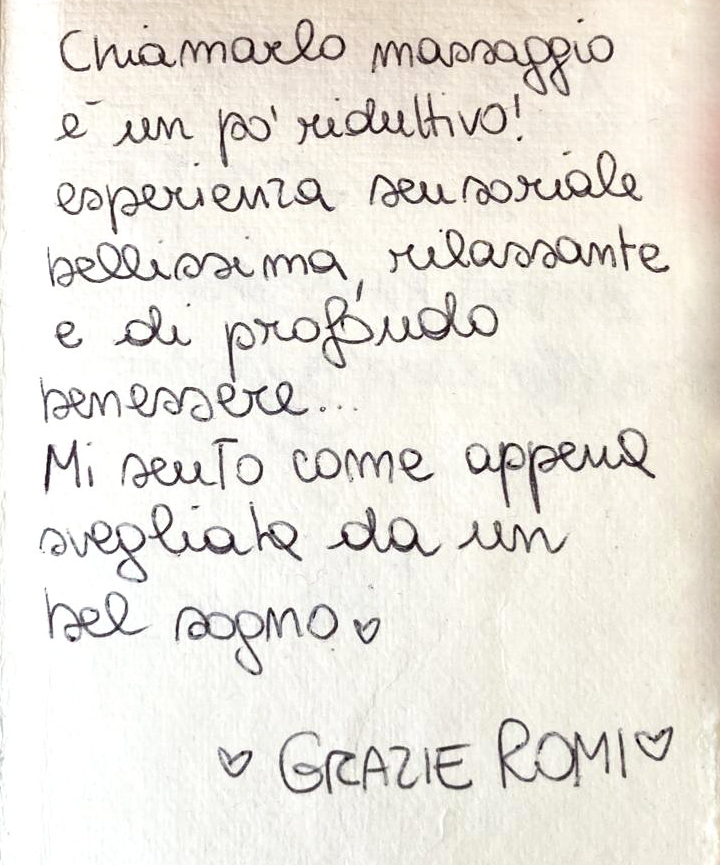 Chiamarlo massaggio
è un po' riduttivo!
esperienza sensoriale
bellissima, rilassante
e di profondo
benessere...
Mi sento come appena
svegliata da un
bel sogno ♡
♡ GRAZIE ROMI ♡